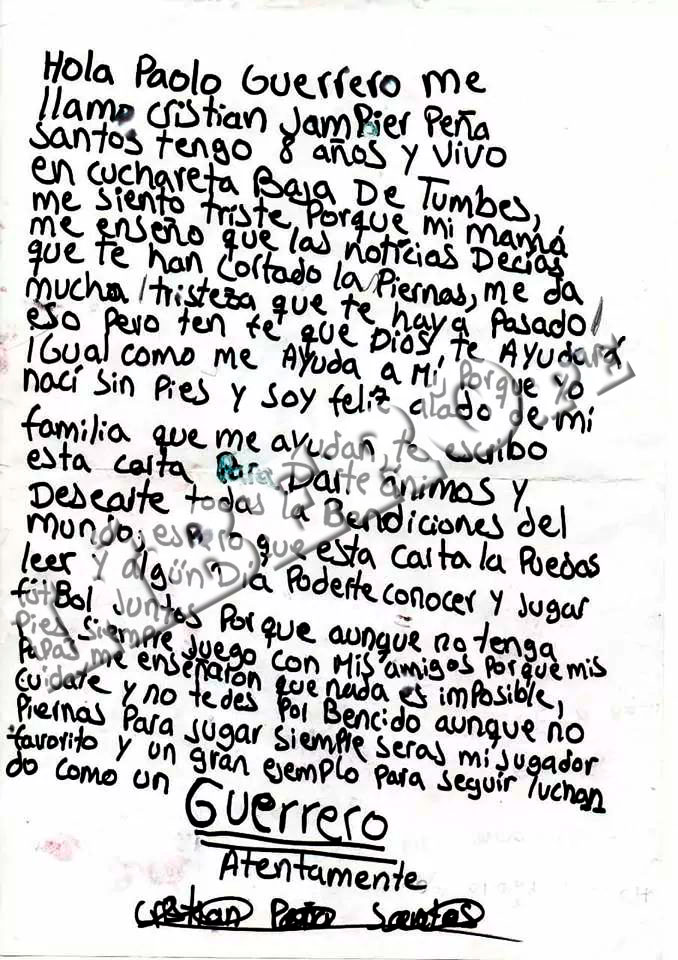 Hola Paolo Guerrero me
llamo Cristian Jampier Peña
Santos tengo 8 años y vivo
en cuchareta Baja De Tumbes,
me siento triste Porque mi mamá
me enseño que las noticias Decias
que te han cortado la Piernas, me da
mucha tristeza que te haya Pasado
eso pero ten te que Dios te Ayudará
IGual como me Ayuda a Mi, Porque yo
nací sin Pies y soy feliz alado de mi
familia que me ayudan, te escribo
esta carta Para Darte ánimos y
Desearte todas la Bendiciones del
mundo, espero que esta carta la Puedas
leer y algún Dia Poderte conocer y Jugar
fútBol Juntos Porque aunque no tenga
Pies siempre Juego con Mis amigos Porque mis
PaPas me enseñaron que nada es imPosible,
cuidate y no te des Por Bencido aunque no
Piernas Para Jugar siempre seras mi jugador
favorito y un gran ejemplo Para seguir luchan
do como un
Guerrero
Atentamente
Cristian Peña Santos
LIBERO.PE